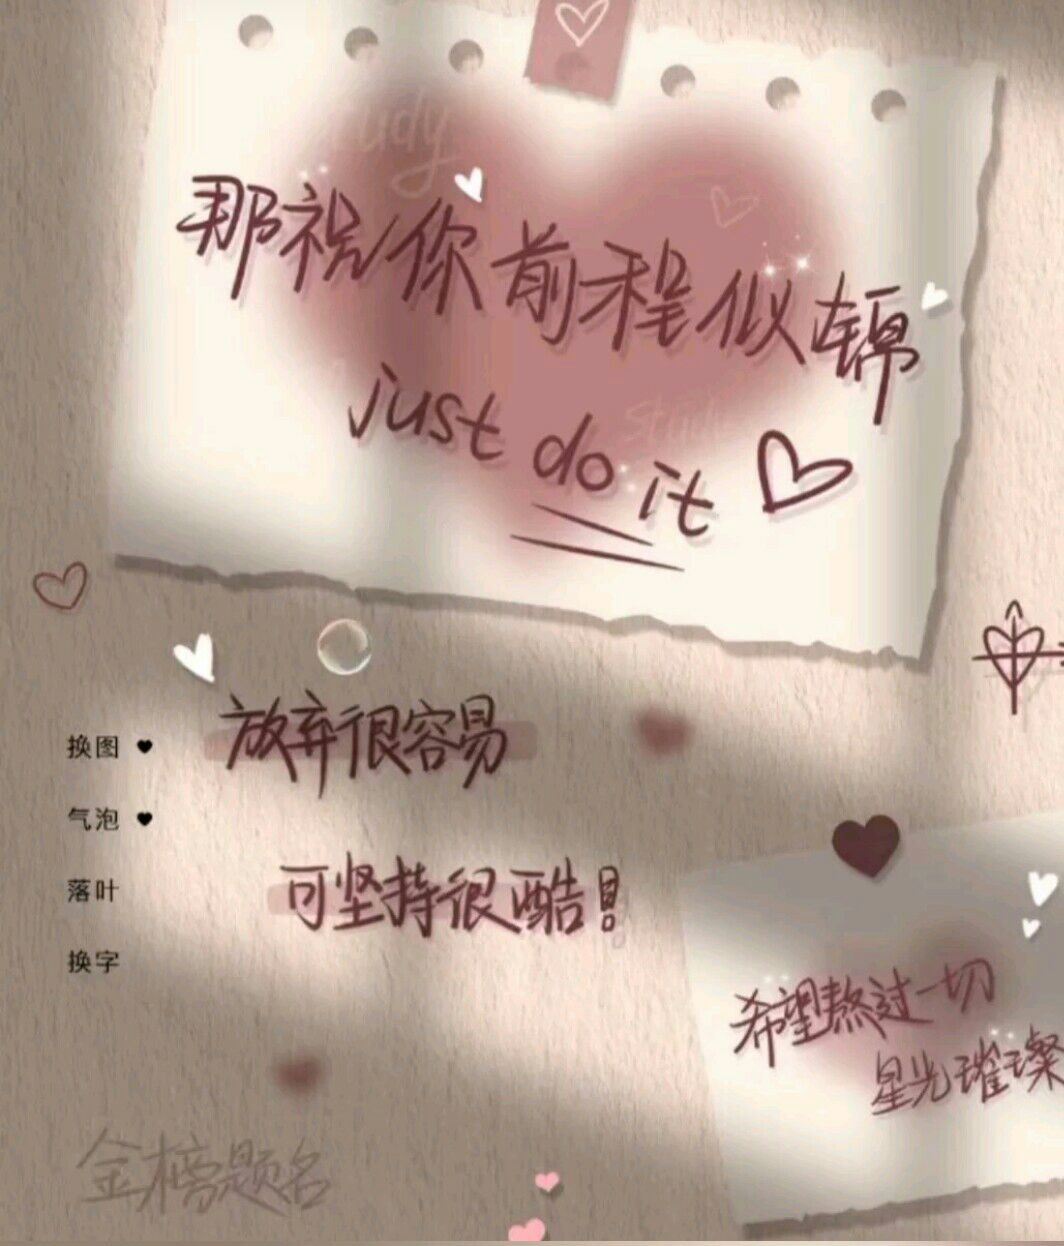 study
那祝你前程似锦
just do it
study
放弃很容易
换图
气泡
可坚持很酷!
落叶
换字
希望熬过一切
星光璀璨
金榜题名